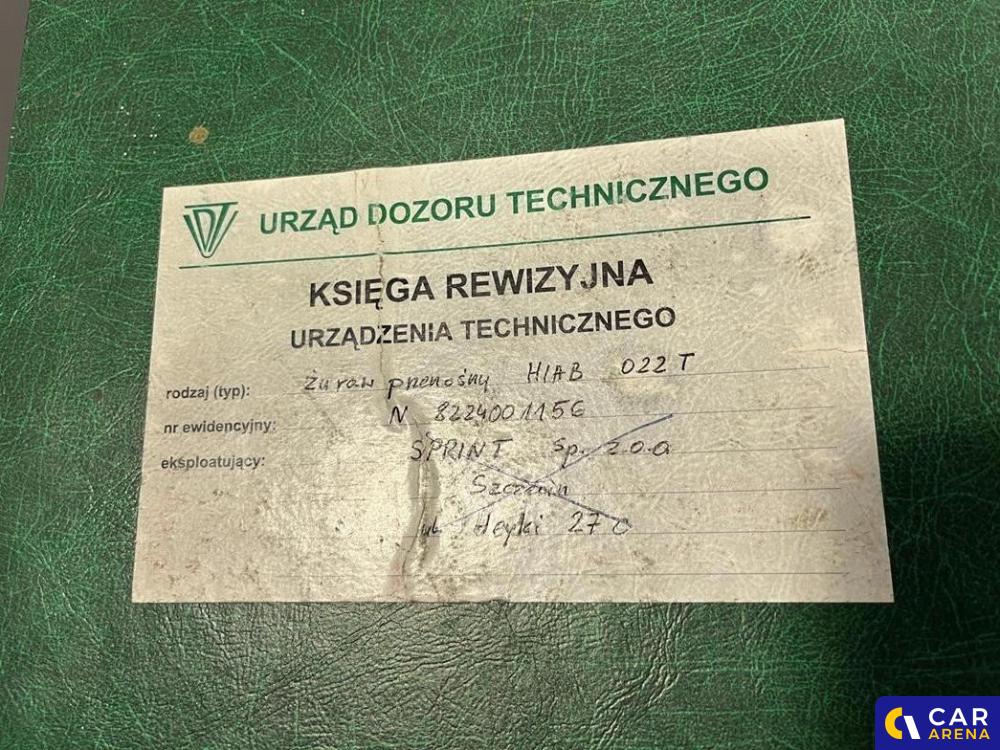 UDT URZĄD DOZORU TECHNICZNEGO
KSIĘGA REWIZYJNA
URZĄDZENIA TECHNICZNEGO
rodzaj (typ): Żuraw przenośny HIAB 022 T
nr ewidencyjny: N 8224001156
eksploatujący: SPRINT Sp. z.o.o
Szczecin
ul. Heyki 27 c
CAR
ARENA